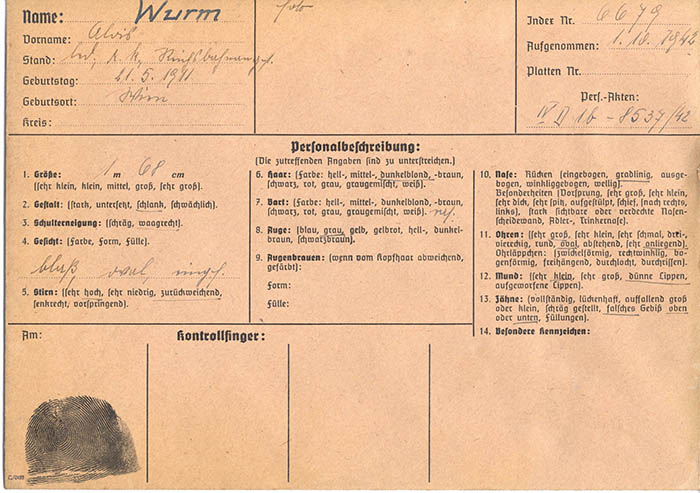 Name: Wurm
Vorname: Alois
Stand: led, r. k, Reichsbahnangst.
Geburtstag: 21. 5. 1911
Geburtsort: Wien
Kreis:
Index Nr. 6679
Aufgenommen: 1. 10. 1942
Platten Nr.
Pers.-Akten:
IV D 1b - 8537/42
Personalbeschreibung:
(Die zutreffenden Angaben sind zu unterstreichen.)
1. Größe: 1 m 68 cm
(sehr klein, klein, mittel, groß, sehr groß).
2. Gestalt: (stark, untersetzt, schlank, schwächlich).
3. Schulterneigung: (schräg, waagrecht).
4. Gesicht: (Farbe, Form, Fülle).
blaß, oval,
5. Stirn: (sehr hoch, sehr niedrig, zurückweichend,
senkrecht, vorspringend).
6. Haar: (Farbe: hell-, mittel-, dunkelblond, -braun,
schwarz, rot, grau, graugemischt, weiß).
7. Bart: (Farbe: hell-, mittel-, dunkelblond, -braun,
schwarz, rot, grau, graugemischt, weiß).
8. Auge: (blau, grau, gelb, gelbrot, hell-, dunkel-
braun, schwarzbraun).
9. Augenbrauen: (wenn vom Kopfhaar abweichend,
gefärbt):
Form:
Fülle:
10. Nase: Rücken (eingebogen, gradlinig, ausge-
bogen, winkliggebogen, wellig).
Besonderheiten (Vorsprung, sehr groß, sehr klein,
sehr dick, sehr spitz, aufgestülpt, schief, [nach rechts,
links], stark sichtbare oder verdeckte Nasen-
scheidewand, Adler-, Trinkernase).
11. Ohren: (sehr groß, sehr klein, sehr schmal, drei-,
viereckig, rund, oval, abstehend, sehr anliegend).
Ohrläppchen: (zwickelförmig, rechtwinklig, bo-
genförmig, freihängend, durchlocht, durchrissen).
12. Mund: (sehr klein, sehr groß, dünne Lippen,
aufgeworfene Lippen).
13. Zähne: (vollständig, lückenhaft, auffallend groß
oder klein, schräg gestellt, falsches Gebiß oben
oder unten, Füllungen).
14. Besondere Kennzeichen:
Am:
Kontrollfinger: